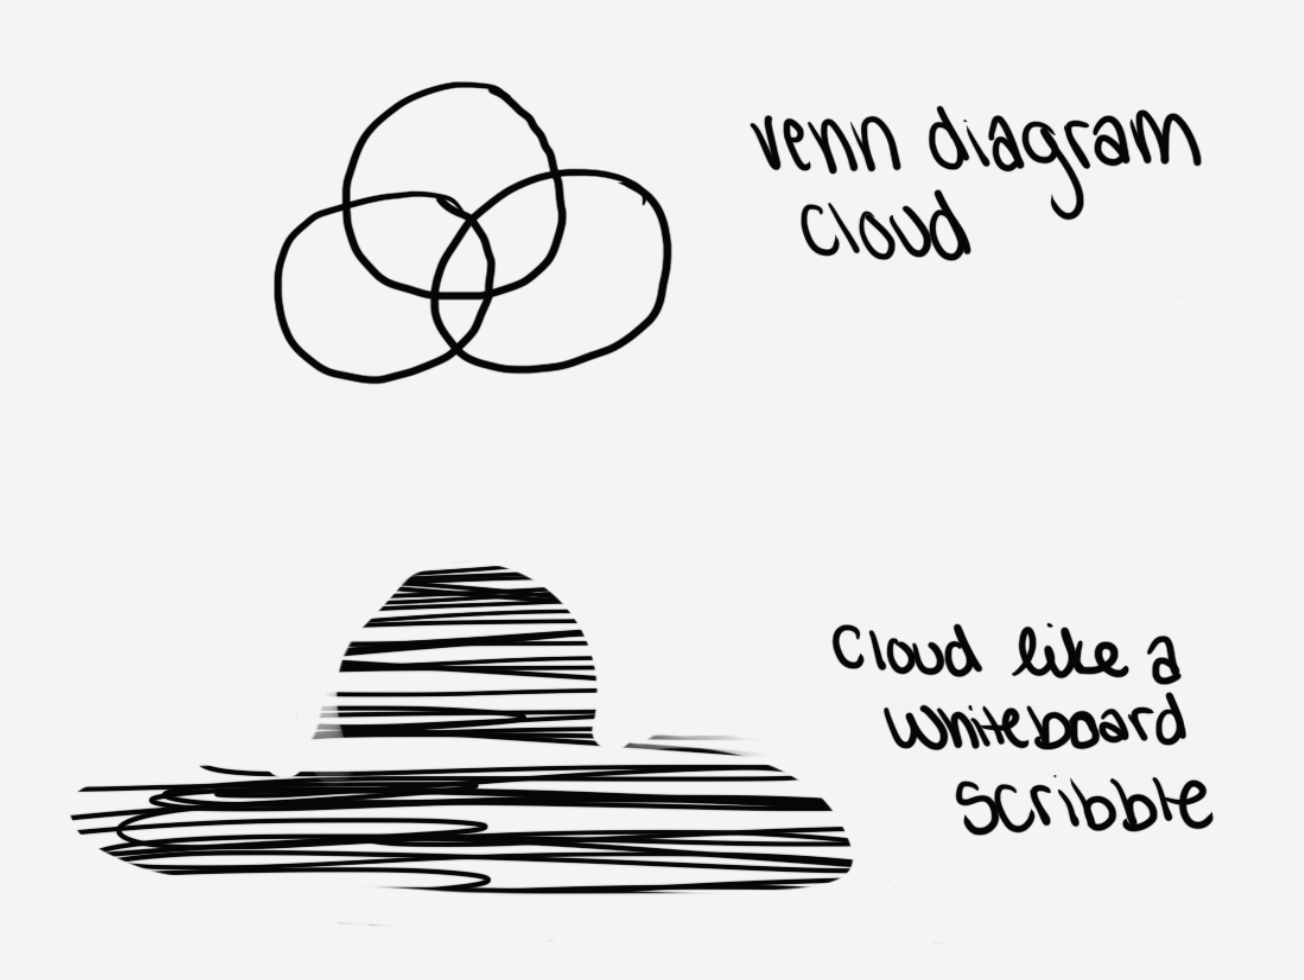 venn diagram
cloud
cloud like a
whiteboard
scribble